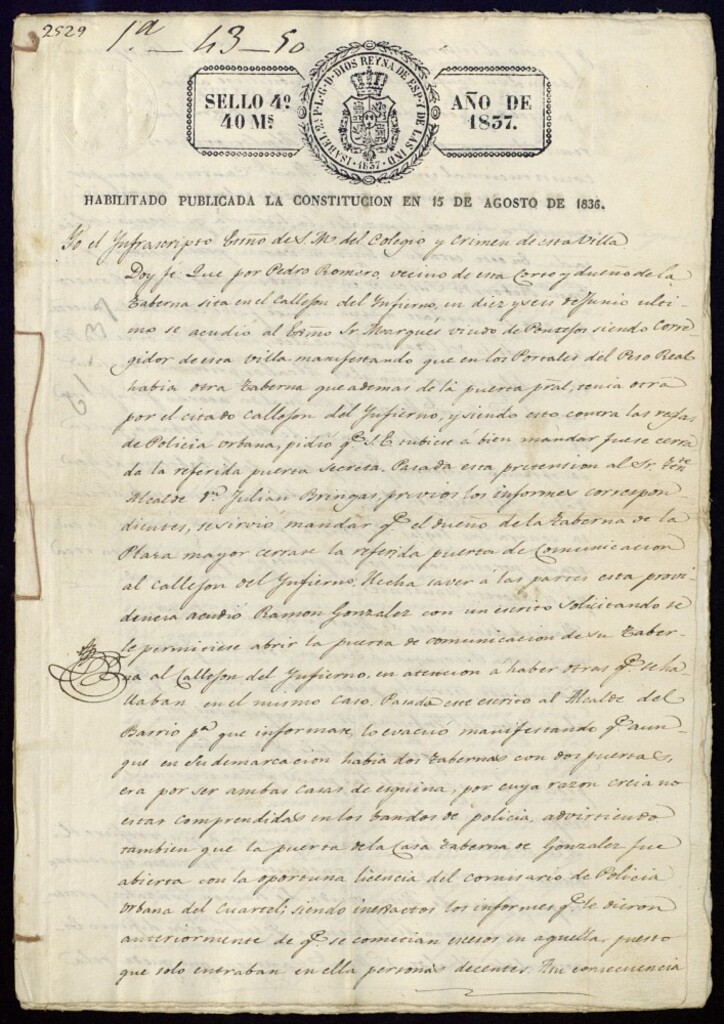 2529
1.ª - 43 - 50
SELLO 4º
40 Mˢ.
ISABEL 2.ª P. L. G. D. DIOS REYNA DE ESP. Y DE LAS IND.
1837
AÑO DE
1837.
HABILITADO PUBLICADA LA CONSTITUCION EN 15 DE AGOSTO DE 1836.
Yo el Infrascripto Esnño de S. M. del Colegio y Crimen de esta Villa
Doy fe: Que por Pedro Romero, vecino de esta Corte y dueño de la
Taberna sita en el Callejon del Infierno, en diez y seis de Junio ulti-
mo se acudio al Exmo Sr. Marqués viudo de Pontejos siendo Corre-
gidor de esta Villa manifestando que en los Portales del Peso Real
habia otra Taberna que ademas de la puerta pral, tenia otra
por el citado Callejon del Infierno, y siendo esto contra las reglas
de Policia Urbana, pidió q.ᵉ S. E. tubiese á bien mandar fuese cerra-
da la referida puerta secreta. Pasada esta pretension al Sr. Tenᵗᵉ
Alcalde Julian Bringas, previos los informes correspon-
dientes, se sirvió mandar q.ᵉ el dueño de la Taberna de la
Plaza mayor cerrase la referida puerta de Comunicacion
al Callejon del Infierno. Hecha saver á las partes esta provi-
dencia acudió Ramon Gonzalez con un escrito solicitando se
le permitiese abrir la puerta de comunicacion de su Taber-
na al Callejon del Infierno, en atencion á haber otras q.ᵉ se ha-
llaban en el mismo caso. Pasado este escrito al Alcalde del
Barrio pᵃ que informase, lo evacuó manifestando q.ᵉ aun-
que en su demarcacion habia dos Tabernas con dos puertas,
era por ser ambas casas de esquina, por cuya razon creia no
estar comprendidas en los bandos de policia, advirtiendo
tambien que la puerta de la Casa Taberna de Gonzalez fue
abierta con la oportuna licencia del comisario de Policia
Urbana del Cuartel; siendo inexactos los informes q.ᵉ le dieron
anteriormente de q.ᵉ se cometian excesos en aquella, puesto
que solo entraban en ella personas decentes. En consecuencia